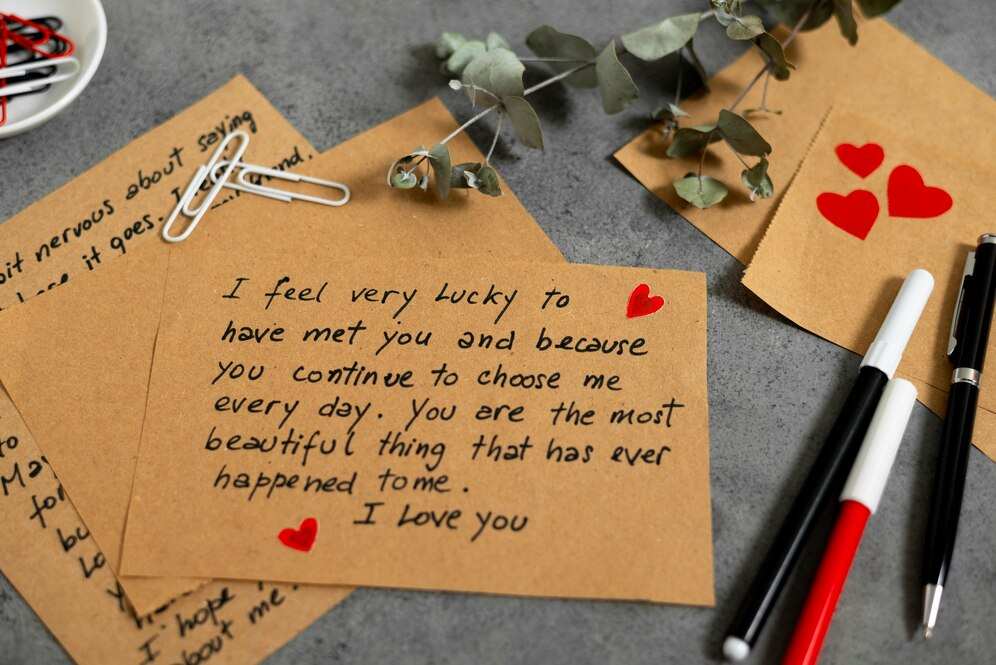 bit nervous about saying
it goes. I
and.
I feel very Lucky to
have met you and because
you continue to choose me
every day. You are the most
beautiful thing that has ever
happened to me.
I Love you
to
for
I hope
about me.